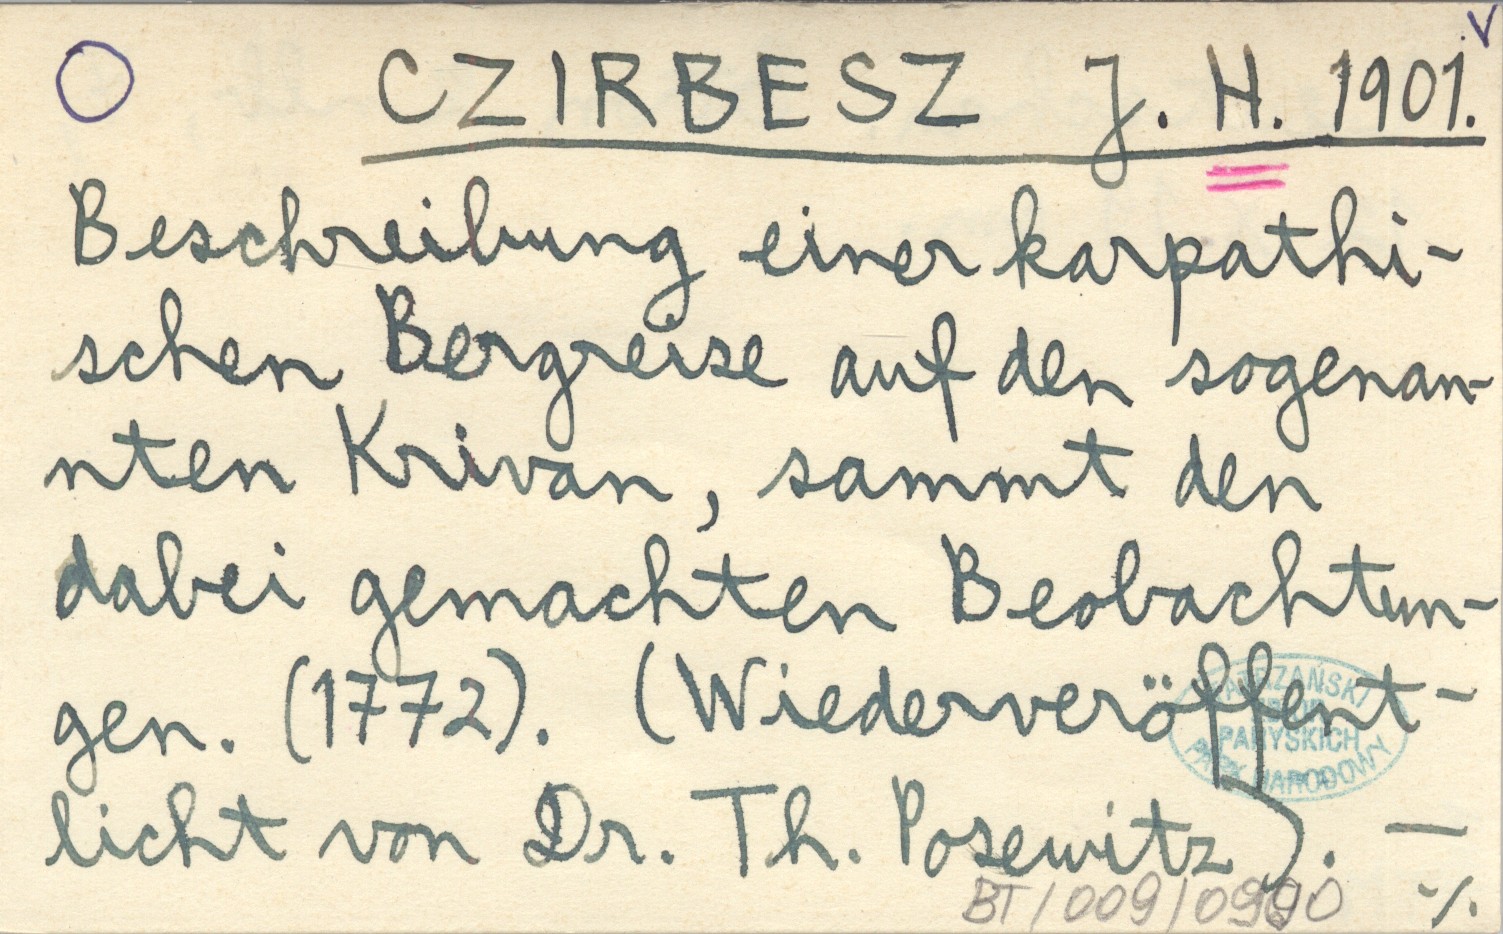 CZIRBESZ J. H. 1901. v
Beschreibung einer karpathi-
schen Bergreise auf den sogenan-
nten Krivan, sammt den
dabei gemachten Beobachtun-
gen. (1772). (Wiederveröffent-
licht von Dr. Th. Posewitz). —
TATRZAŃSKI
PARYSKICH
PARK NARODOWY
BT/009/0990
-/.